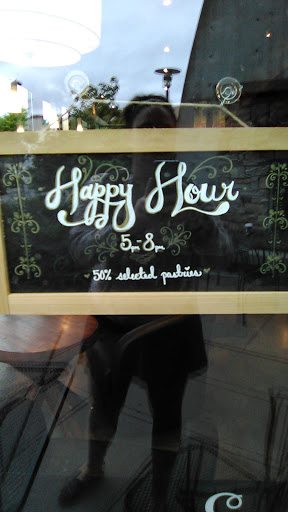 Happy Hour
5pm-8pm
50% selected pastries